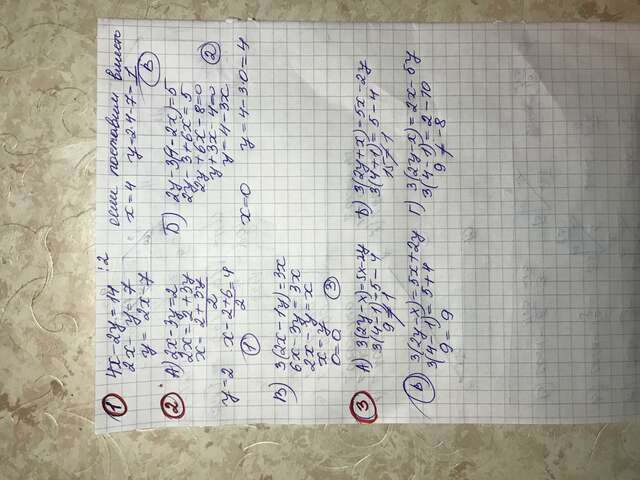 ① 4x-2y=14 :2
2x-y=7
y=2x-7
если поставим вместо
x=4 y=2·4-7=1
(В)
② А) 2x-3y=2
2x=2+3y
x=2+3y/2
y=2 x=2+6/2=4
①
Б) 2y-3(1-2x)=5
2y-3+6x=5
2y+6x-8=0
y+3x-4=0
y=4-3x
②
x=0 y=4-3·0=4
В) 3(2x-1y)=3x
6x-3y=3x
2x-y=x
x=y
0=0
③
③ А) 3(2y-x)=5x-2y
3(4-1)=5-4
9≠1
Б) 3(2y+x)=5x-2y
3(4+1)=5-4
15≠1
(В) 3(2y-x)=5x+2y
3(4-1)=5+4
9=9
Г) 3(2y-x)=2x-5y
3(4-1)=2-10
9≠-8